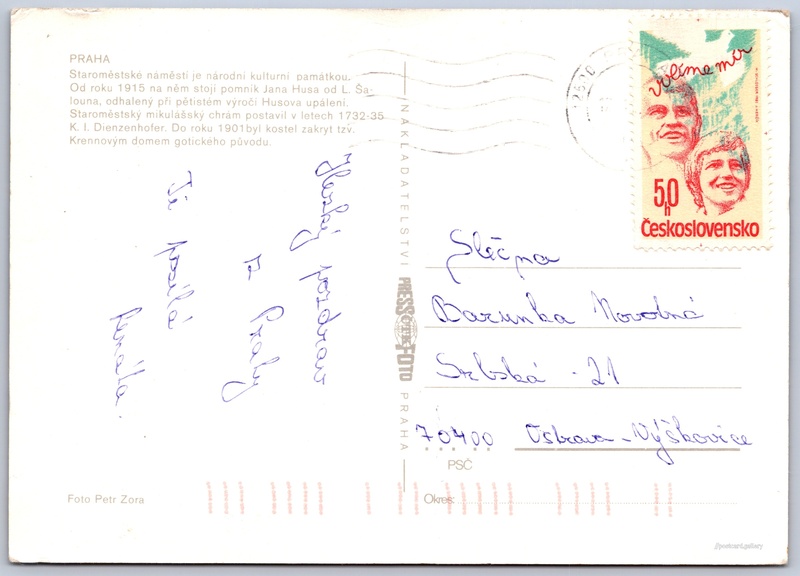 PRAHA
Staroměstské náměstí je národní kulturní památkou.
Od roku 1915 na něm stojí pomník Jana Husa od L. Ša-
louna, odhalený při pětistém výročí Husova upálení.
Staroměstský mikulášský chrám postavil v letech 1732-35
K. I. Dienzenhofer. Do roku 1901 byl kostel zakryt tzv.
Krennovým domem gotického původu.
Hezký pozdrav
z Prahy
Ti posílá
Renáta.
NAKLADATELSTVÍ PRESSFOTO PRAHA
volíme mír
50
h
Československo
Slečna
Barunka Novotná
Srbská - 21
70400 Ostrava - Výškovice
PSČ
Foto Petr Zora
Okres: